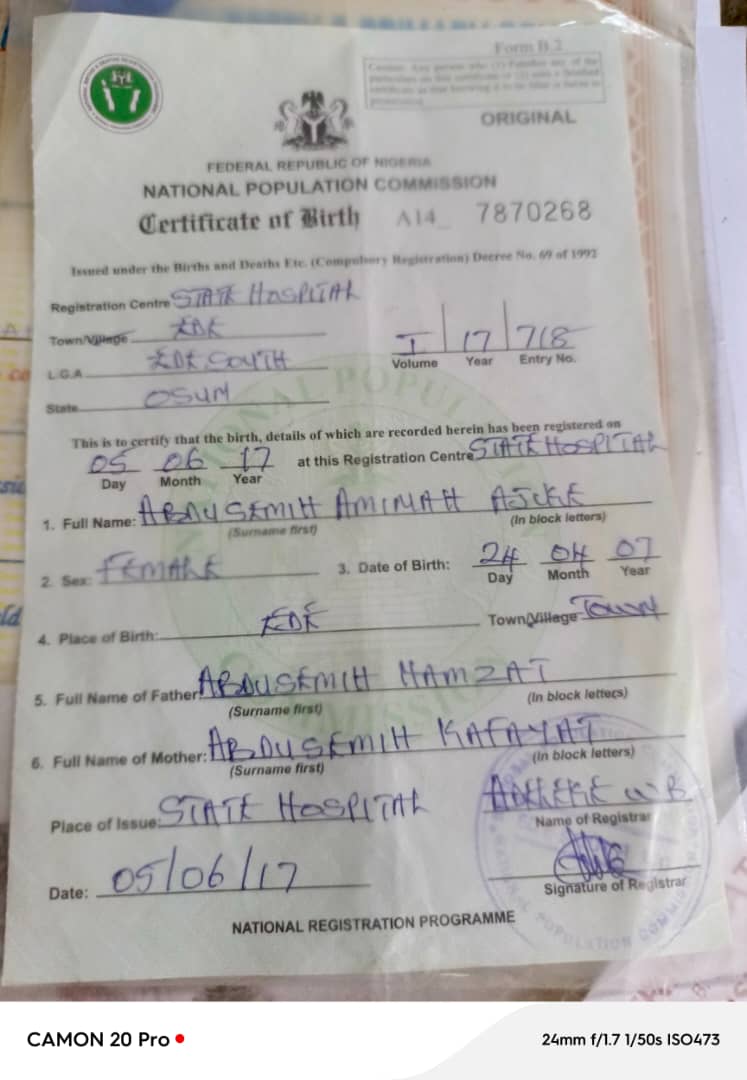 Form B.2
ORIGINAL
FEDERAL REPUBLIC OF NIGERIA
NATIONAL POPULATION COMMISSION
Certificate of Birth A14_ 7870268
Issued under the Births and Deaths Etc. (Compulsory Registration) Decree No. 69 of 1992
Registration Centre STATE HOSPITAL
Town/Village EDE
L.G.A EDE SOUTH
I 17 718
Volume Year Entry No.
State OSUN
This is to certify that the birth, details of which are recorded herein has been registered on
05 06 17 at this Registration Centre STATE HOSPITAL
Day Month Year
1. Full Name: ABDUSEMIH AMINAH AJOKE
(Surname first) (In block letters)
2. Sex: FEMALE 3. Date of Birth: 24 04 07
Day Month Year
4. Place of Birth: EDE Town/Village TOWN
5. Full Name of Father: ABDUSEMIH HAMZAT
(Surname first) (In block letters)
6. Full Name of Mother: ABDUSEMIH KAFAYAT
(Surname first) (In block letters)
Place of Issue: STATE HOSPITAL
Name of Registrar
Date: 05/06/17
Signature of Registrar
NATIONAL REGISTRATION PROGRAMME
CAMON 20 Pro 24mm f/1.7 1/50s ISO473